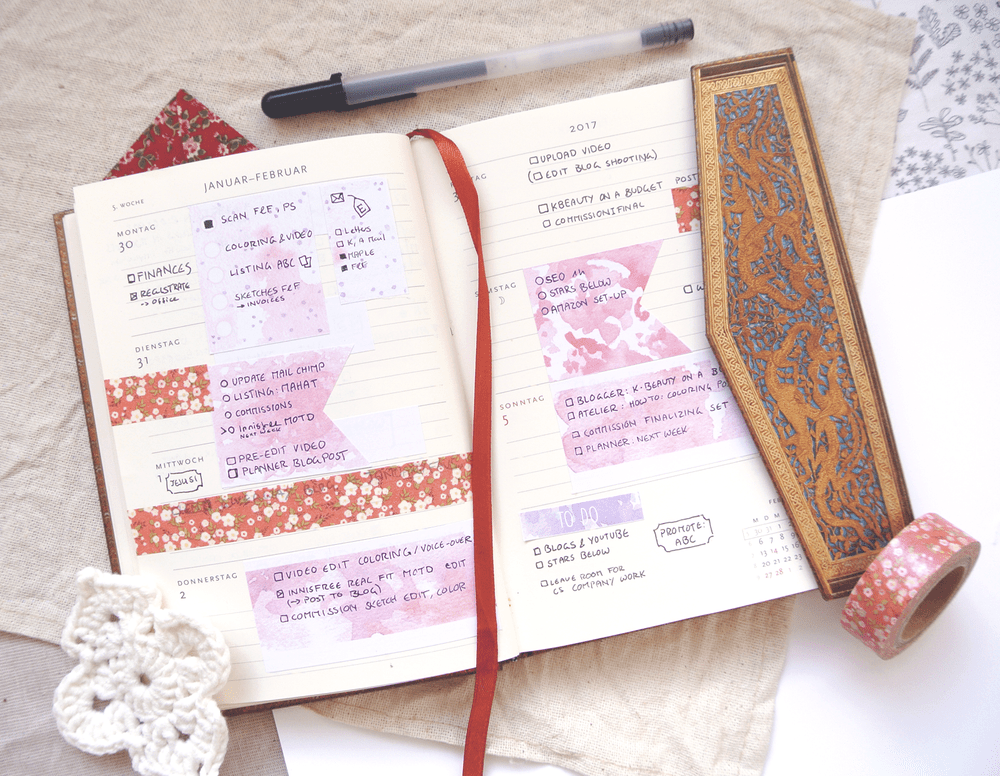 JANUAR–FEBRUAR
5. WOCHE
MONTAG
30
FINANCES
REGISTRATE
→ OFFICE
SCAN F&E, PS
COLORING & VIDEO
LISTING ABC
SKETCHES F&F
→ INVOICES
E
Letters
K, A Mail
MAPLE
DIENSTAG
31
UPDATE MAIL CHIMP
LISTING: MAHAT
COMMISSIONS
>O innisfree MOTD
NEXT WEEK
PRE-EDIT VIDEO
PLANNER BLOGPOST
MITTWOCH
1
JEJUS!
DONNERSTAG
2
VIDEO EDIT COLORING/VOICE-OVER
INNISFREE REAL FIT MOTD EDIT
(→ POST TO BLOG)
COMMISSION SKETCH EDIT, COLOR
2017
UPLOAD VIDEO
(EDIT BLOG SHOOTING)
KBEAUTY ON A BUDGET POST
COMMISSION FINAL
SEO 1h
STARS BELOW
AMAZON SET-UP
SONNTAG
5
BLOGGER: K-BEAUTY ON A
ATELIER: HOWTO: COLORING
COMMISSION FINALIZING SET
PLANNER: NEXT WEEK
TO DO
BLOGS & YOUTUBE
STARS BELOW
LEAVE ROOM FOR
CS COMPANY WORK
PROMOTE:
ABC
M D M
6 7 8
13 14 15
20 21 22
27 28